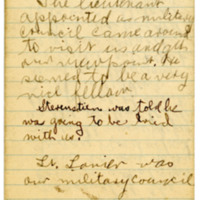 The lieutenant
appointed as military
council came around
to visit us and get
our viewpoint. He
seemed to be a very
nice fellow.
Stevenson was told he
was going to be tried
with us.
Lt. Lanier was
our military council